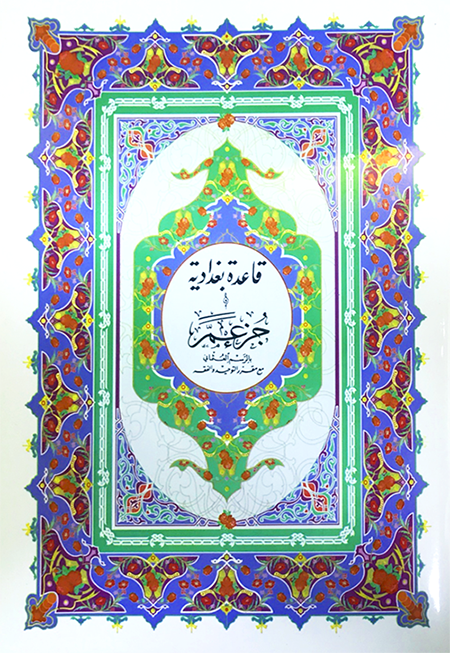 قاعدة بغدادية
جُزْعَمَّ
بالرسم العثماني
مع مقرر التوحيد والفقه